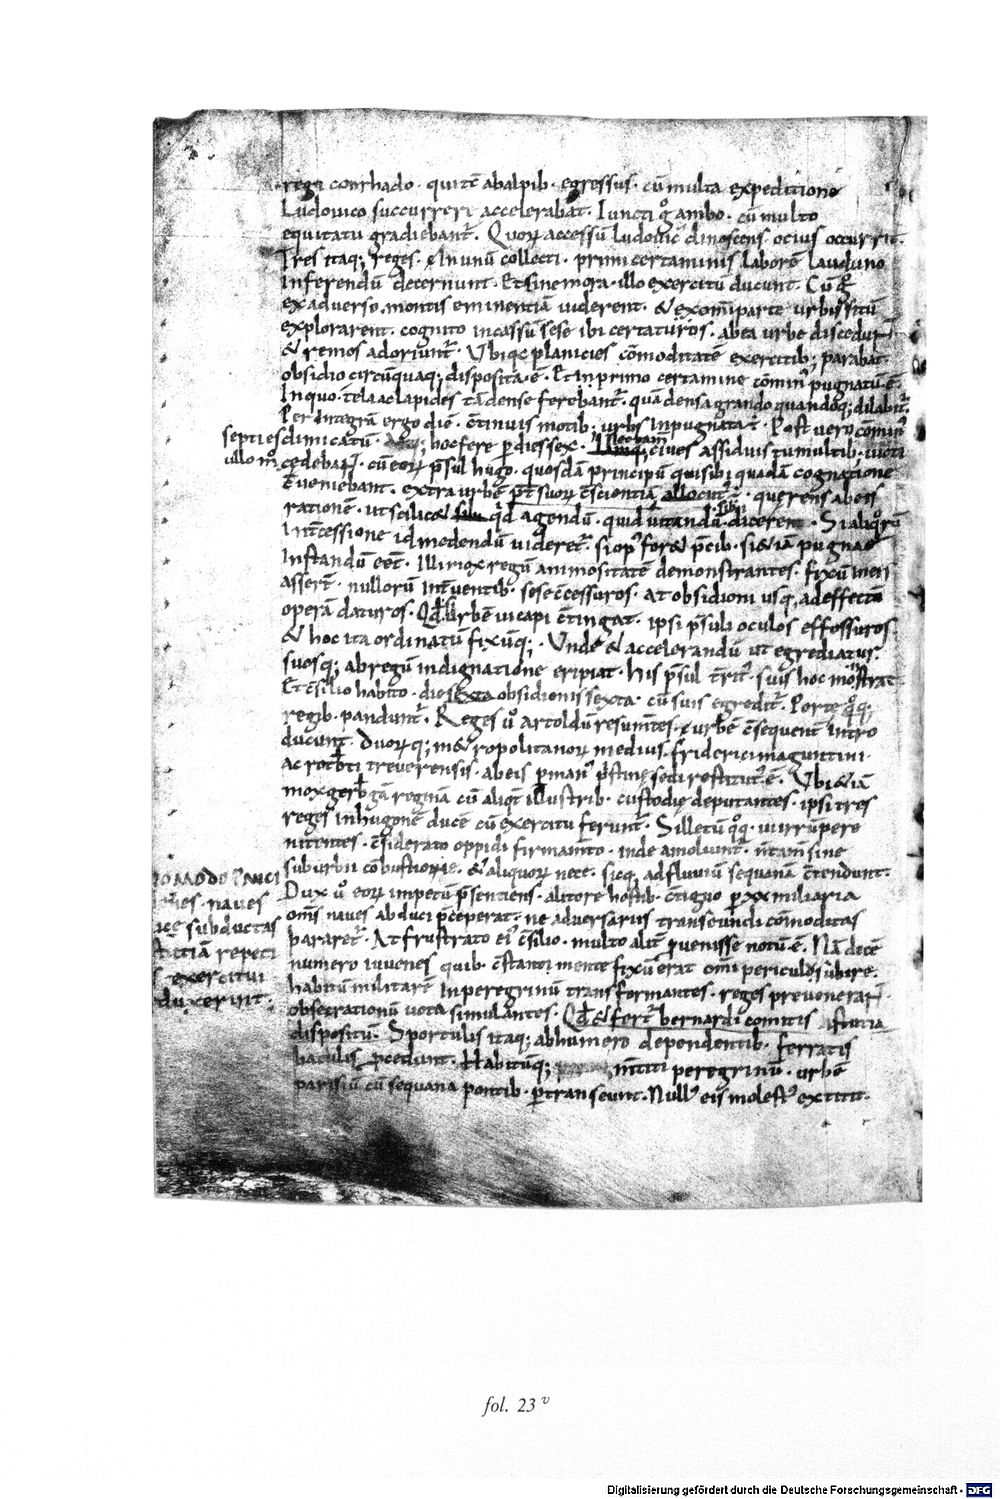 rege conrhado · qui tc̄ ab alpib · egressus · cū multa expeditione
Ludovico succurrere accelerabat. Iuncti g̊ ambo · cū multo
equitatu gradiebant̄. Quorꝝ accessū ludovic' dinoscens · ocius occurrit.
Tres itaq; reges · in unū collecti · primi certaminis laborē lauduno
inferendū decernunt. Et sine mora · illo exercitū ducunt. Cū
ex adverso montis eminentiā viderent · & ex om̄i parte urbis sitū
explorarent · cognito incassū sese ibi certaturos · ab ea urbe discedunt
& remos adoriunt̄. Ubi planicies cōmoditatē exercitib; parabat
obsidio circūquaq; disposita · ē. Et in primo certamine cōmin' pugnatū · ē.
In quo tela ac lapides tā dense ferebant̄ · quā densa grando quandoq; dilabit̄.
Per integrā ergo diē · c̄tinuis motib; urbs inpugnata · Post vero cōmin'
septies dimicatū · hoc fere p dies sex · cives assiduis tumultib · victi
ullo m̊ cedebaꝝ · cū eorꝝ p̄sul hugo · quosdā principū qui sibi quadā cognatione
c̄veniebant · extra urbē p̄t suorꝝ c̄scientiā · querens ab eis
rationē · ut scilic& q̇d agendū · quid vitandū dicerent · Si
intercessione id medendū vider& · si op' for& p̄cib · si & iā pugnae
instandū eēt · Illi mox regū animositatē demonstrantes · fixū
asserē · nullorū int̄ventib · sese c̄cessuros · At obsidioni usq; ad effectū
operā daturos · Qd̄ si urbē vi capi c̄tingat · ipsi p̄suli oculos effossuros
& hoc ita ordinatū fixūq; · Unde & accelerandū ut egrediatur
suosq; ab regū indignatione eripiat · his p̄sul t̄rit' · suis hoc monstrat
Et c̄silio habito · die sexta obsidionis sexta · cū suis egredit̄ · Porte q̊q;
regib · pandunt̄. Reges v̊ artoldū resum̄tes · urbē c̄sequent intro
ducunt. Duorꝝq; m&ropolitanorꝝ medius friderici maguntini
ac rotb̄ti treverensis · ab eis p man' p̄stinę sedi restitut' ē. Ubi & iā
mox gerb̄gā reginā cū aliqt illustrib · custodię deputantes · ipsi tres
reges in hugonē ducē cū exercitu ferunt̄. Silletū q̊q · vi irrūpere
nitentes · c̄siderato oppidi firmam̄to · inde amoliunt̄ · n̄ tam̄ sine
suburbii cōbustione · & aliquorꝝ nece · sicq; ad fluviū sequanā c̄tendunt.
Dux v̊ eorꝝ impetū p̄sentiens · a litore hostib · c̄tiguo p xx miliaria
om̄s naves abduci p̄ceperat · ne adversariis transeundi cōmoditas
parar&. At frustrato ei' c̄silio · multo alit̄ pvenisse notū · ē. Nā decē
numero iuvenes quib · c̄stanti mente fixū erat om̄i periculos ūbire ·
habitū militarē in peregrinū transformantes · reges prevenerāꝝ
obsecrationū vota simulantes. Qd̄ & fert̄ bernardi comitis astutia
dispositū. Sportulis itaq; ab humero dependentib · ferratis
baculis pcedunt. Habitūq; m̄titi peregrinū · urbē
parisiū cū sequana pontib · ptranseunt. Null' eis molest' extitit.
Naves subductas
exercitui
duxerint.
fol. 23 v
Digitalisierung gefördert durch die Deutsche Forschungsgemeinschaft - DFG